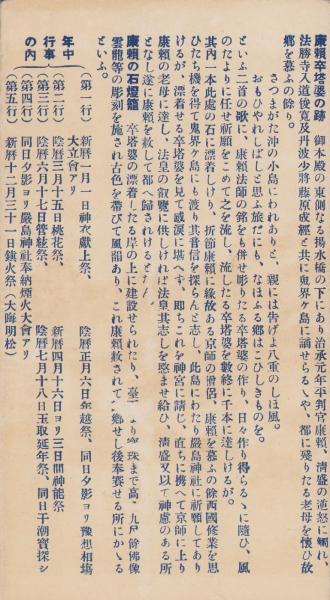 康頼卒塔婆の跡　御本殿の東側なる揚水橋の下にあり治承元年平判官康頼、清盛の逆怒に觸れ、
法勝寺入道俊寛及丹波少將藤原成經と共に鬼界ヶ島に謫せらるゝや、都に殘りたる老母を懷ひ故
郷を慕ふの餘り。
さつまがた沖の小島にわれありと、親には告げよ八重のしほ風。
おもひやれしばしと思ふ旅だにも、なほふる郷はこひしきものを。
といふ二首の歌に、康頼法師の銘をも併せ彫りたる卒塔婆の作り、日々作り得らるゝに隨ひ、風
のたよりに任せ祈願をこめて之を流し、流したる卒塔婆を數終に千本に達しけるが。
其内一本此處の石に漂着しけり、折節康頼に緣故ある京師の僧侶、康頼を慕ふの餘西國修業を思
ひたち機を得て鬼界ヶ島にも渡り其音信を探らんと志し、此島にわたり嚴島神社に祈願してあり
けるが、漂着せる卒塔婆を見て感涙に堪へず、即ちこれを神宮に請じ、直ちに携へて京師に上り
康頼の老母に達し、法皇の叡覽に供しければ法皇其志しを愍ませ給ひ、清盛又以て神慮のある所
となし遂に康頼を赦して都へ歸されけると
康頼の石燈籠　卒塔婆の漂着したる岸の上に建設せられたり、臺 より 珠まで高 九尺餘佛像
雲龍等の彫刻を施され古色を帶びて風韻あり、これ康頼赦されて 歸せし後奉賽せる所にかゝる
といふ。
年中
行事
の内
（第一行）　新曆一月一日神衣獻上祭、　陰曆正月六日年越祭、同日夕影ヨリ豫想相塲
大立會アリ
（第二行）　陰曆三月十五日桃花祭、　新曆四月十六日ヨリ三日間神能祭
（第三行）　陰曆六月十七日管絃祭、　陰曆七月十八日玉取延年祭、同日干潮寶探シ
（第四行）　同日夕影ヨリ嚴島神社奉納煙火大會アリ
（第五行）　新曆十二月三十一日鎮火祭（大晦明松）